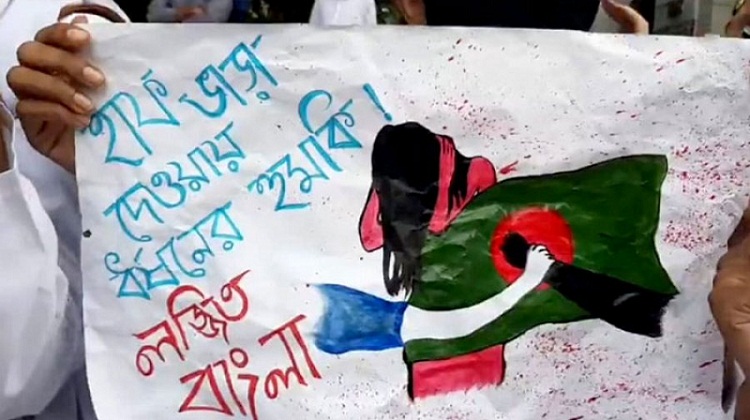 হাফ ভাড়া
দেওয়ায়
ধর্ষনের হুমকি!
লজ্জিত
বাংলা